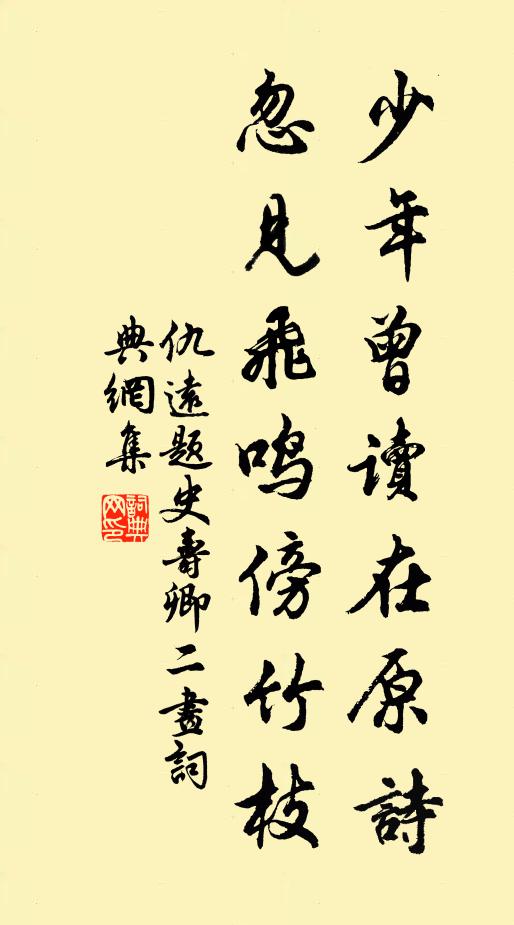 少年曾讀在原詩
忽見飛鳴傍竹枝
仇遠題史壽卿二畫詞
典網集
詞典網印